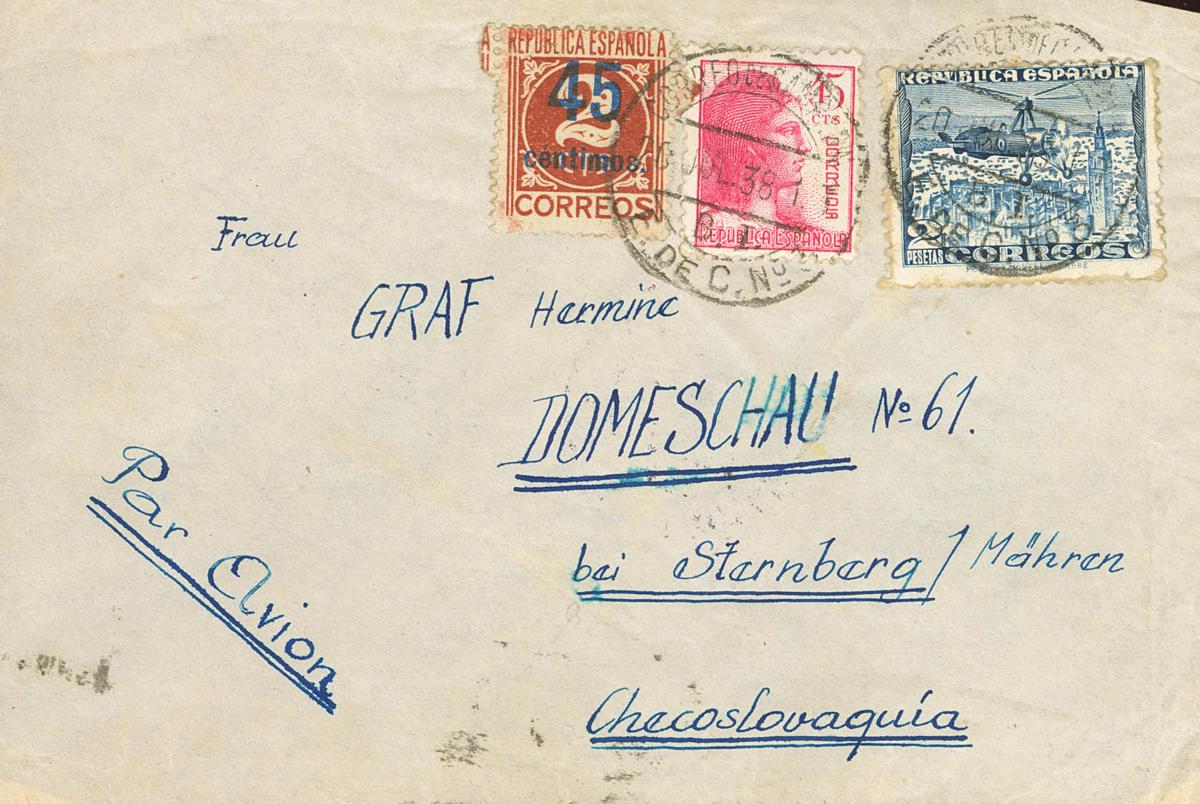 A REPUBLICA ESPAÑOLA
45
2
céntimos.
CORREOS
45 CTS
REPUBLICA ESPAÑOLA
REPUBLICA ESPAÑOLA
2 PESETAS CORREOS
CORREO DE CAMPAÑA
20 JUL. 38
B.I.
E. DE C. Nº
20
B.I.
DE C. Nº
Frau
GRAF Hermine
DOMESCHAU No 61.
bei Sternberg / Mähren
Checoslovaquía
Par Avion